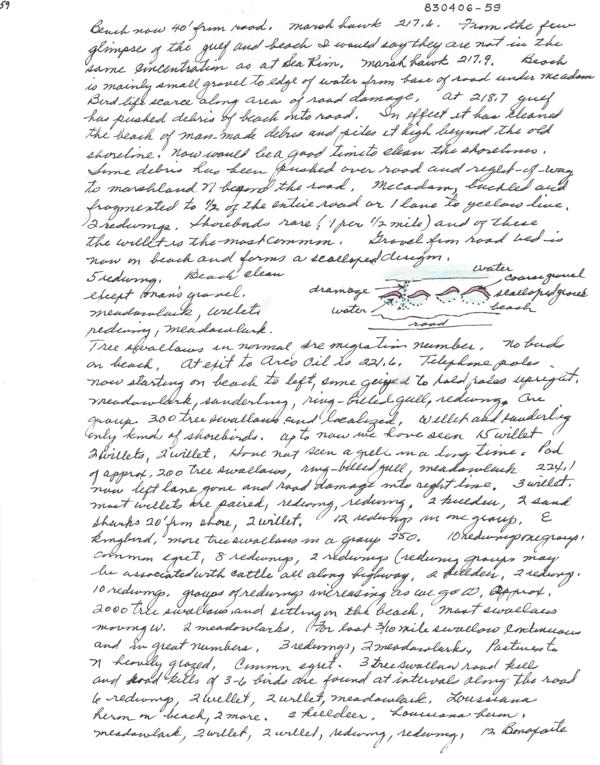 59
830406-59
Beach now 40' from road. marsh hawk 217.6. From the few
glimpse of the gulf and beach I would say they are not in the
same concentration as at Sea Rim. Marsh hawk 217.9. Beach
is mainly small gravel to edge of water from base of road under mcadam
Bird life scarce along area of road damage. At 218.7 gulf
has pushed debris of beach onto road. In effect it has cleaned
the beach of man-made debris and piles it high beyond the old
shoreline. Now would be a good time to clean the shorelines.
Some debris has been pushed over road and right-of-way
to marshland N beyond the road. McCadam, buckled and
fragmented to 1/2 of the entire road or 1 lane to yellow line.
2 redwings. Shorebirds rare (1 per 1/2 mile) and of these
the willet is the most common. Gravel from road bed is
now on beach and forms a scalloped design.
5 redwing. Beach clean
except man's gravel.
meadowlark, willets
redwing, meadowlark.
water
coarse gravel
dramage
scalloped gravel
water
beach
road
Tree swallows in normal pre migration number. No birds
on beach. At exit to Arco Oil is 221.6. Telephone poles
now starting on beach to left, some guyed to hold poles upright.
meadowlark, sanderling, ring-billed gull, redwing. One
group 300 tree swallows and localized. Willet and sanderling
only kind of shorebirds. Up to now we have seen 15 willet
2 willets, 2 willet. Have not seen a gull in a long time. Pod
of approx. 200 tree swallows, ring-billed gull, meadowlark 224.1
now left lane gone and road damage into right line. 3 willet.
most willets are paired, redwing, redwing, 2 killdeer, 2 sand
sharks 20' from shore, 2 willet. 12 redwings in one group, E
kingbird, more tree swallows in a group 250. 10 redwings one group,
common egret, 8 redwings, 2 redwings (redwing groups may
be associated with cattle all along highway, 2 killdeer, 2 redwing.
10 redwings. groups of redwings increasing as we go W, approx.
2000 tree swallows and sitting on the beach, most swallows
moving W. 2 meadowlarks, (For last 3/10 mile swallow continuous
and in great numbers. 3 redwings, 2 meadowlarks, Pastures to
N heavily grazed, Common egret. 3 tree swallow road kill
and road kills of 3-6 birds are found at intervals along the road
6 redwings, 2 willet, 2 willet, meadowlark. Louisiana
heron on beach, 2 more. 2 killdeer. Louisiana heron.
meadowlark, 2 willet, 2 willet, redwing, redwing, 12 Bonaparte